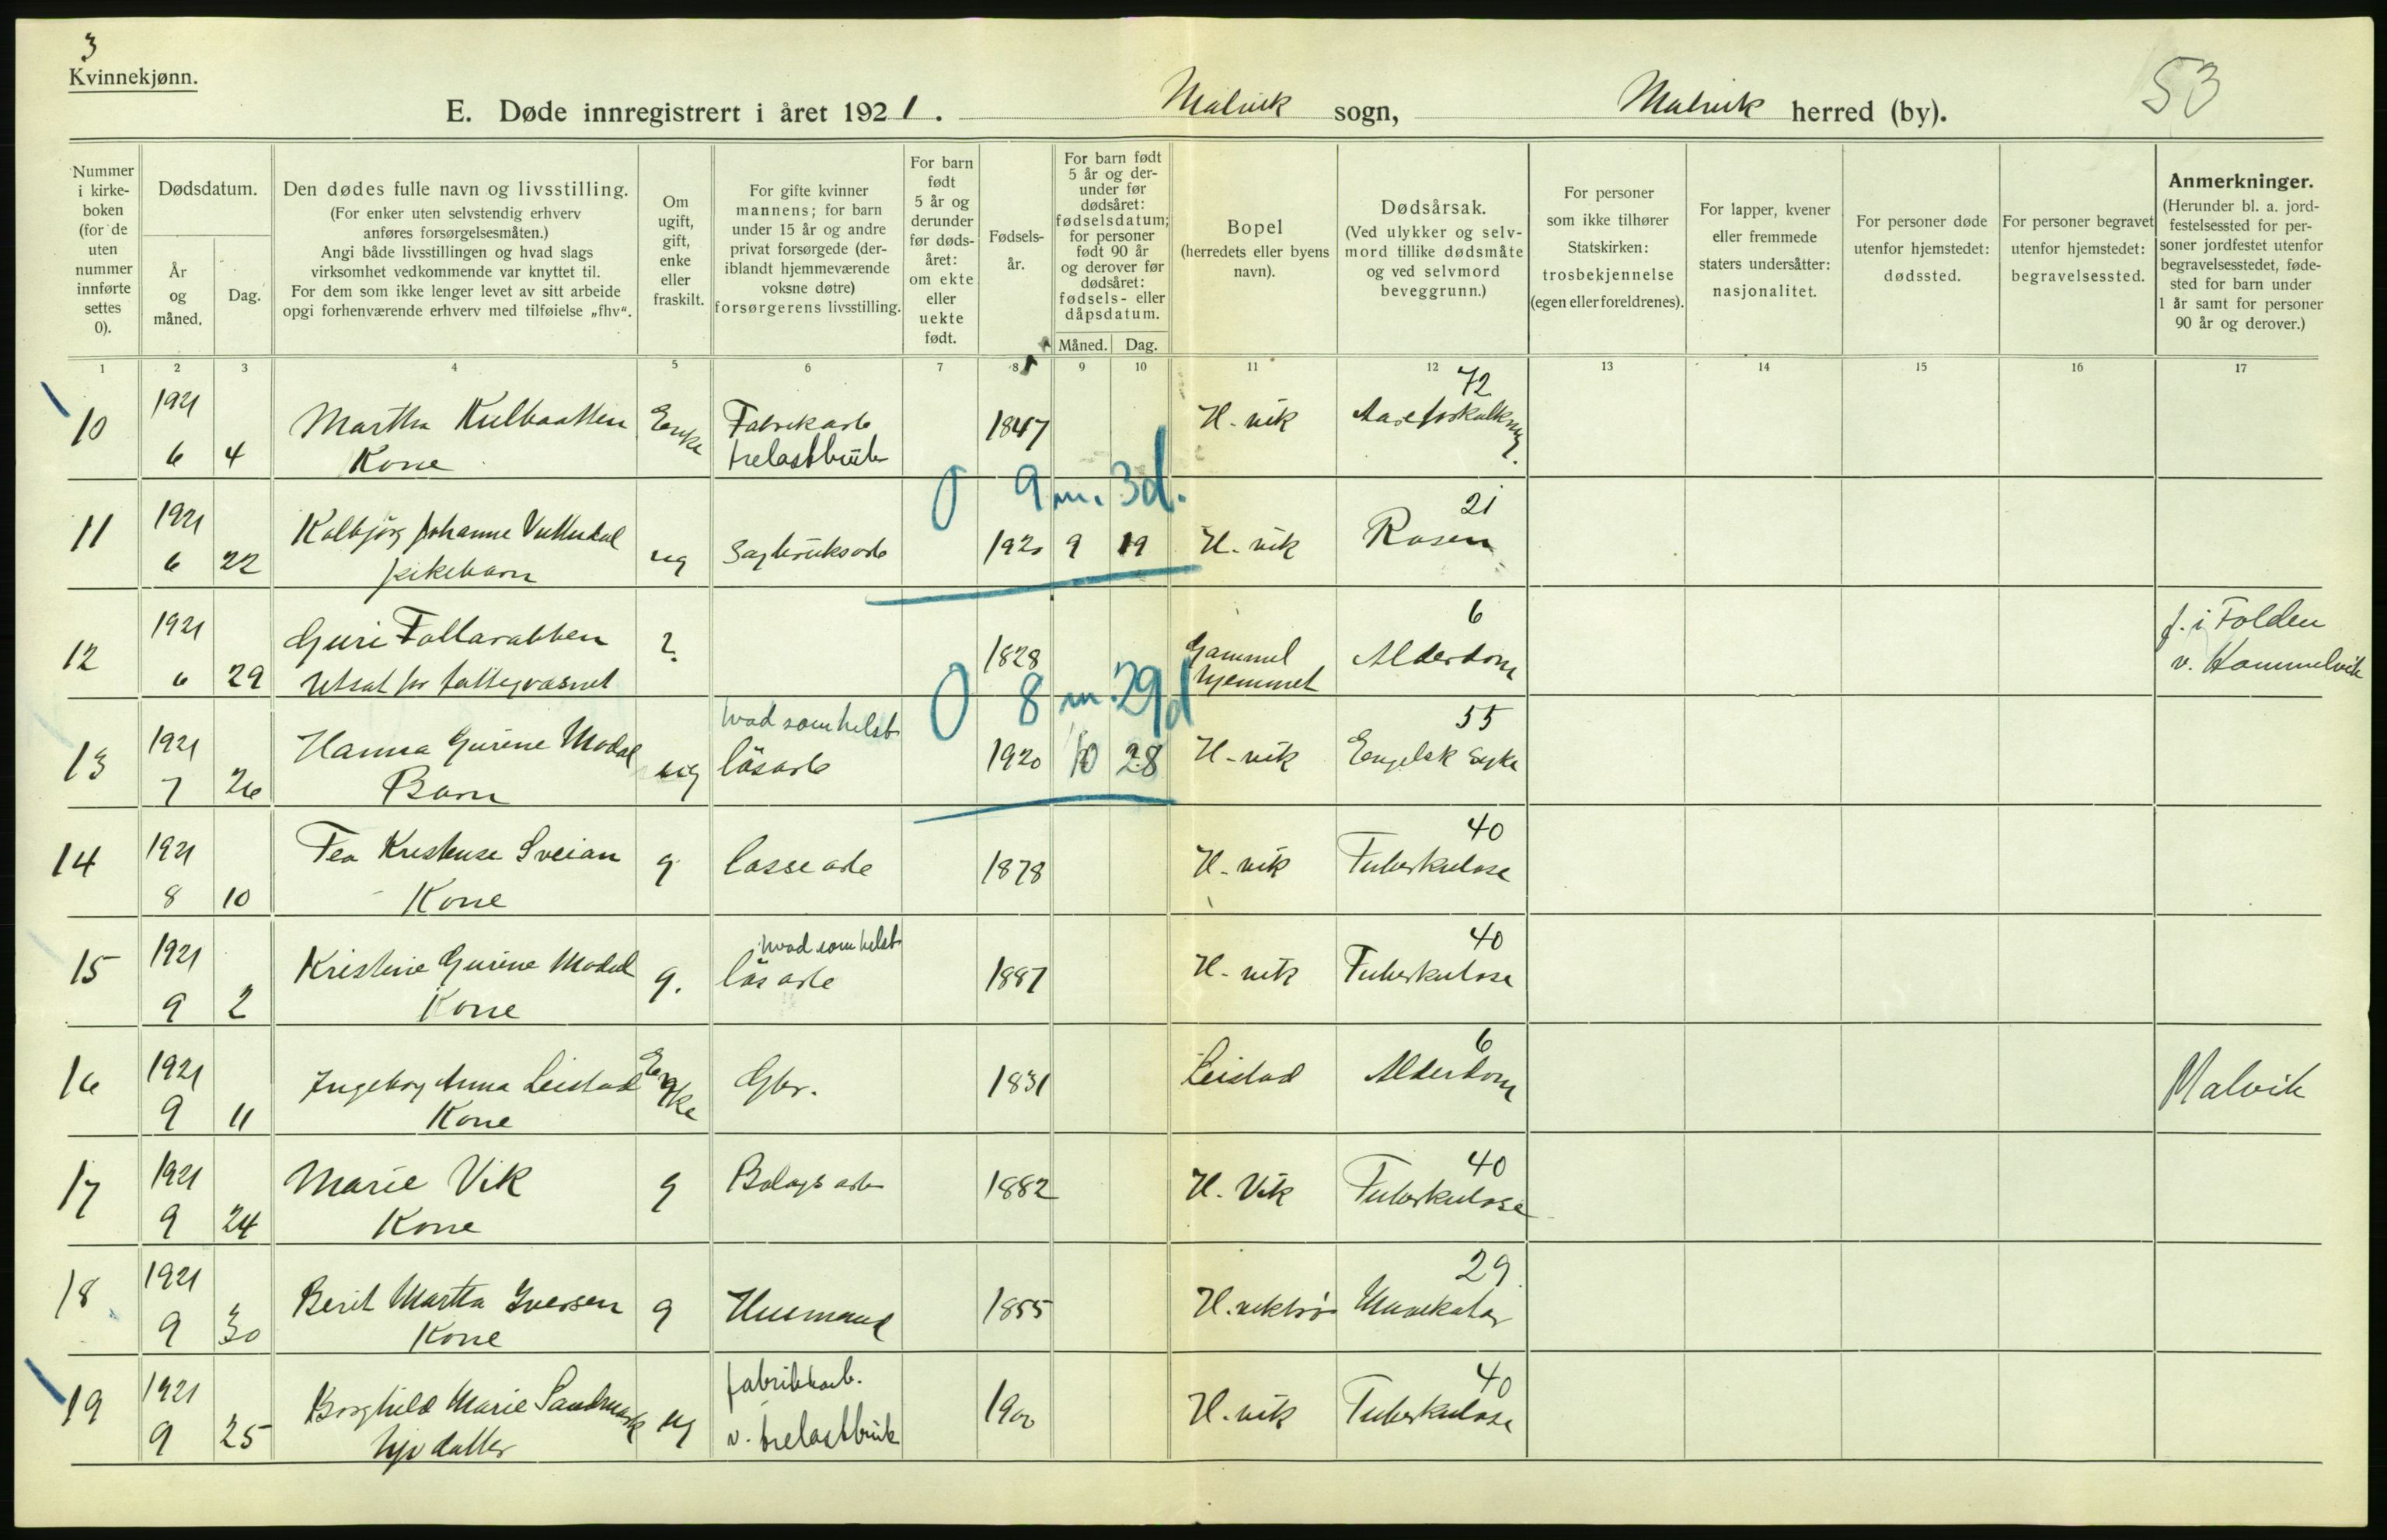 3
Kvinnekjønn.
53
E. Døde innregistrert i året 1921. Malvik sogn, Malvik herred (by).
Nummer i kirke-boken (for de uten nummer innførte settes 0).
Dødsdatum.
År og måned.
Dag.
Den dødes fulle navn og livsstilling.
(For enker uten selvstendig erhverv anføres forsørgelsesmåten.)
Angi både livsstillingen og hvad slags virksomhet vedkommende var knyttet til.
For dem som ikke lenger levet av sitt arbeide opgi forhenværende erhverv med tilføielse „fhv“.
Om ugift, gift, enke eller fraskilt.
For gifte kvinner mannens; for barn under 15 år og andre privat forsørgede (der-iblandt hjemmeværende voksne døtre) forsørgerens livsstilling.
For barn født 5 år og derunder før døds-året: om ekte eller uekte født.
Fødsels-år.
For barn født 5 år og der-under før dødsåret: fødselsdatum; for personer født 90 år og derover før dødsåret: fødsels- eller dåpsdatum.
Måned. Dag.
Bopel (herredets eller byens navn).
Dødsårsak.
(Ved ulykker og selv-mord tillike dødsmåte og ved selvmord beveggrunn.)
For personer som ikke tilhører Statskirken: trosbekjennelse (egen eller foreldrenes).
For lapper, kvener eller fremmede staters undersåtter: nasjonalitet.
For personer døde utenfor hjemstedet: dødssted.
For personer begravet utenfor hjemstedet: begravelsessted.
Anmerkninger.
(Herunder bl. a. jord-festelsessted for per-soner jordfestet utenfor begravelsesstedet, føde-sted for barn under 1 år samt for personer 90 år og derover.)
1 2 3 4 5 6 7 8 9 10 11 12 13 14 15 16 17
72
10 1921 Martha Enke Fabrikarb 1847 H-vik Aareforkalkning.
6 4 Kone trelastbruk
0 9 m. 3 d.
21
11 1921 Kolbjørg Johanne
6 22 pikebarn ug Sagbruksarb 1920 9 19 H.vik Rosen
6
12 1921 Guri Follarabben ? 1828 Gammel Alderdom f. i Folden
6 29 Utsat for fattigvæsnet hjemmet v. Hommelvik
0 8 m. 29 d
hvad somhelst 55
13 1921 Hanna Gurine Modal ug løsarb 1920 10 28 H-vik Engelsk syke
7 26 Barn
40
14 1921 Fea Sveian g lossearb 1878 H-vik Tuberkulose
8 10 Kone
hvad somhelst 40
15 1921 Kristine Gurine Modal g. løsarb 1887 H-vik Tuberkulose
9 2 Kone
6
16 1921 Ingeborg Anna Leistad Enke Gbr. 1831 Leistad Alderdom Malvik
9 11 Kone
40
17 1921 Marie Vik g 1882 H. Vik Tuberkulose
9 24 Kone
29
18 1921 Berit Martha Iversen g Husmand 1855 Mavekatar
9 30 Kone
fabrikkarb. 40
19 1921 Borghild Marie Sandmark ug 1900 H.vik Tuberkulose
9 25 hjv datter v. trelastbruk